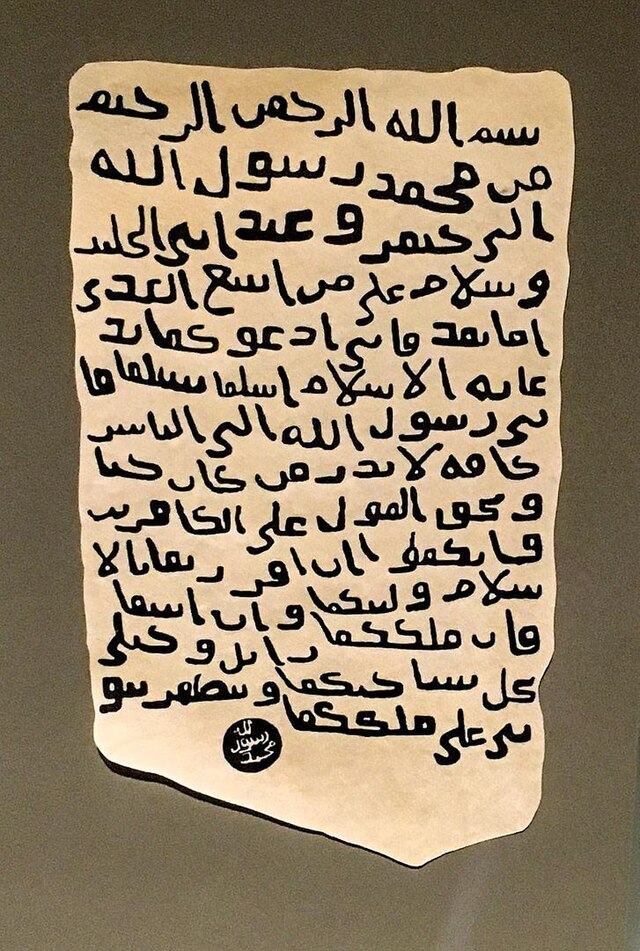 بسم الله الرحمن الرحيم
من محمد رسول الله
الى جيفر وعبد ابني الجلند
وسلام على من اتبع الهدى
اما بعد فاني ادعوكما بد
عايه الاسلام اسلما تسلما فا
ني رسول الله الى الناس
كافه لانذر من كان حيا
ويحق القول على الكافرين
فانكما ان اقررتما بالا
سلام وليتكما وان ابيتما
فان ملككما زايل وخيلي
تحل بساحتكما وتظهر نبو
تي على ملككما
الله
رسول
محمد